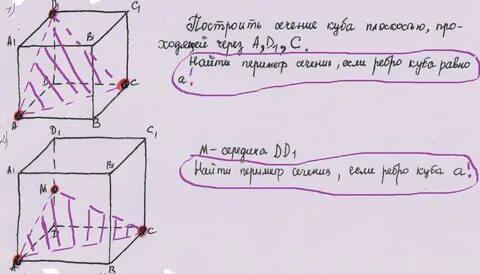 1)
D1
C1
A1
B1
D
C
A
B
Построить сечение куба плоскостью, про-
ходящей через A, D1, C.
Найти периметр сечения, если ребро куба равно
a!
2)
D1
C1
A1
B1
M
D
C
A
B
M - середина DD1
Найти периметр сечения, если ребро куба a!